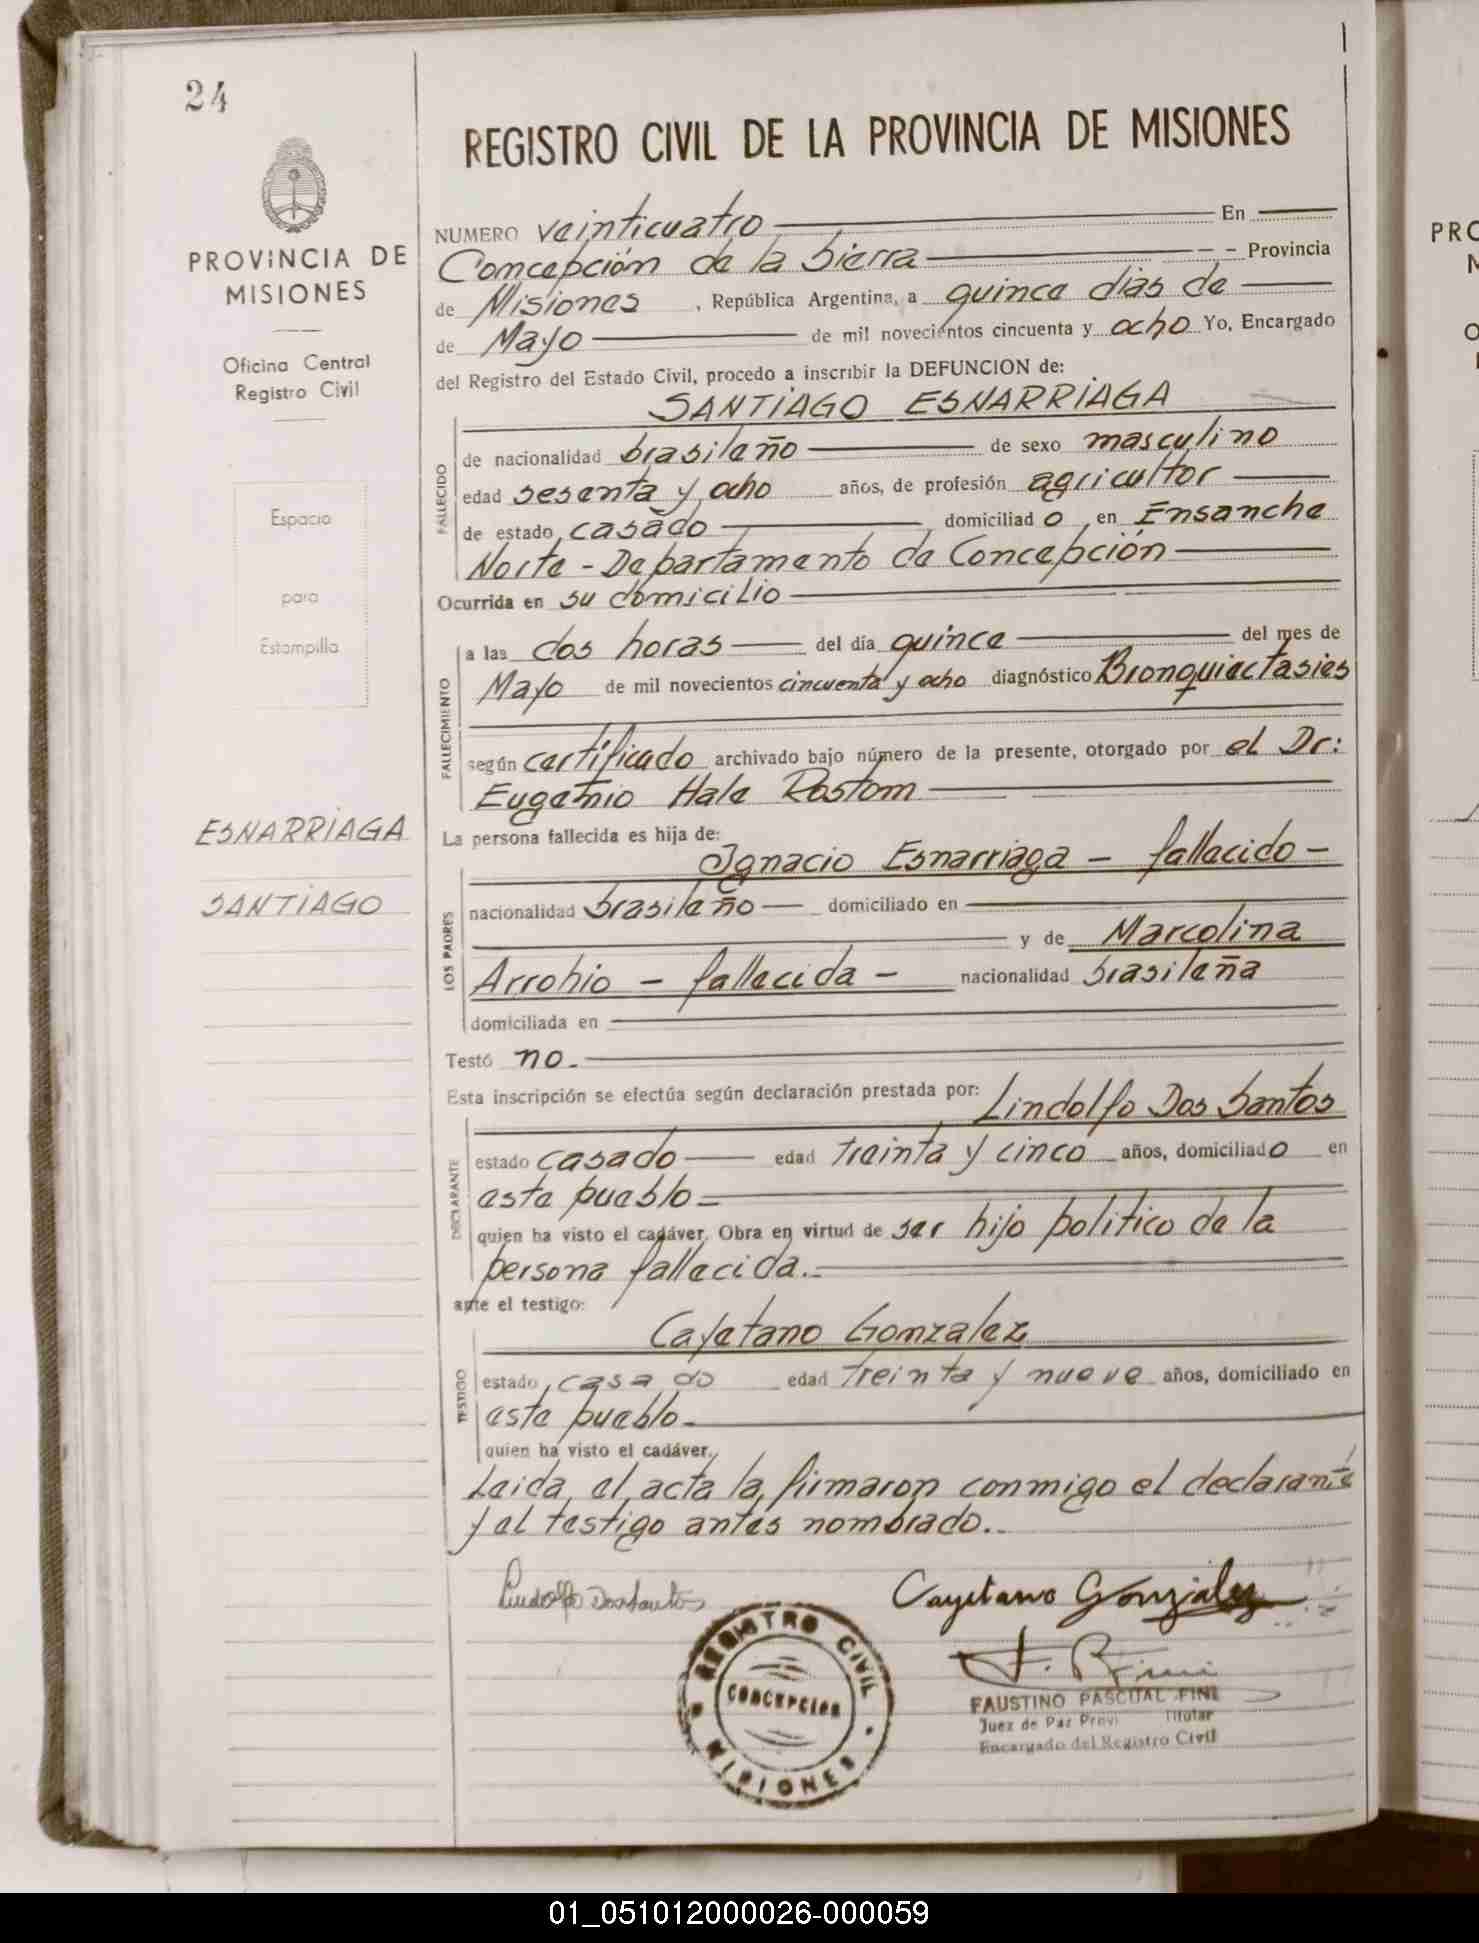 24
PROVINCIA DE
MISIONES
Oficina Central
Registro Civil
Espacio
para
Estampilla
ESNARRIAGA
SANTIAGO
REGISTRO CIVIL DE LA PROVINCIA DE MISIONES
NUMERO veinticuatro En
Concepción de la Sierra Provincia
de Misiones, República Argentina, a quince dias de
de Mayo de mil novecientos cincuenta y ocho Yo, Encargado
del Registro del Estado Civil, procedo a inscribir la DEFUNCION de:
SANTIAGO ESNARRIAGA
FALLECIDO
de nacionalidad brasileño de sexo masculino
edad sesenta y ocho años, de profesión agricultor
de estado casado domiciliado en Ensanche
Norte - Departamento de Concepción
Ocurrida en su domicilio
FALLECIMIENTO
a las dos horas del día quince del mes de
Mayo de mil novecientos cincuenta y ocho diagnóstico Bronquiectasies
según certificado archivado bajo número de la presente, otorgado por el Dr:
Eugenio Hale Rostom
La persona fallecida es hija de:
LOS PADRES
Ignacio Esnarriaga - fallecido -
nacionalidad brasileño domiciliado en
y de Marcolina
Arrohio - fallecida - nacionalidad brasileña
domiciliada en
Testó no.
Esta inscripción se efectúa según declaración prestada por: Lindolfo Dos Santos
DECLARANTE
estado casado edad treinta y cinco años, domiciliado en
este pueblo
quien ha visto el cadáver. Obra en virtud de ser hijo politico de la
persona fallecida.
ante el testigo:
Cayetano Gonzalez
TESTIGO
estado casado edad treinta y nueve años, domiciliado en
este pueblo.
quien ha visto el cadáver.
Leida el acta la firmaron conmigo el declarante
y el testigo antes nombrado..
Lindolfo Dos Santos
Cayetano González
REGISTRO CIVIL
CONCEPCION
MISIONES
F. P. Fini
FAUSTINO PASCUAL FINI
Juez de Paz Titular
Encargado del Registro Civil
PRO
01_051012000026-000059